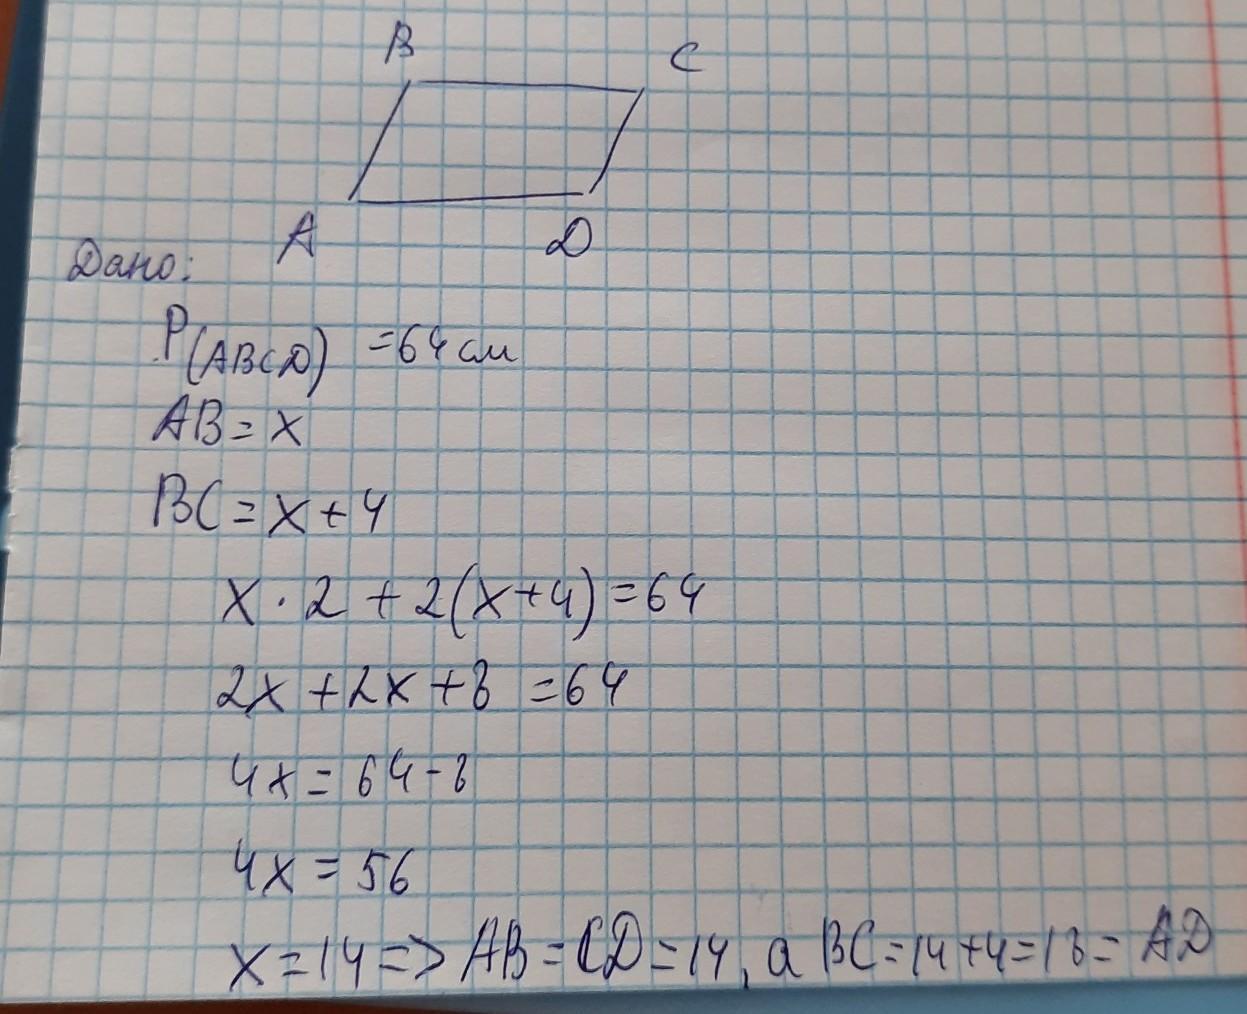 B C
A D
Дано:
P(ABCD) =64 см
AB = x
BC = x + 4
x · 2 + 2(x+4) = 64
2x + 2x + 8 = 64
4x = 64 - 8
4x = 56
x = 14 => AB = CD = 14, а BC = 14 + 4 = 18 = AD